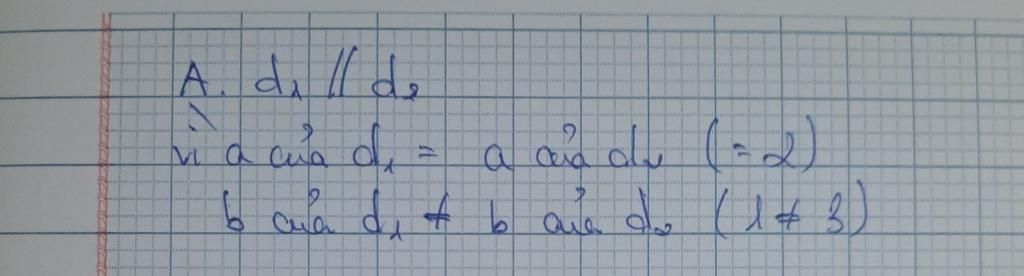 A. d₁ // d₂
vì a của d₁ = a của d₂ (= 2)
b của d₁ ≠ b của d₂ (1 ≠ 3)